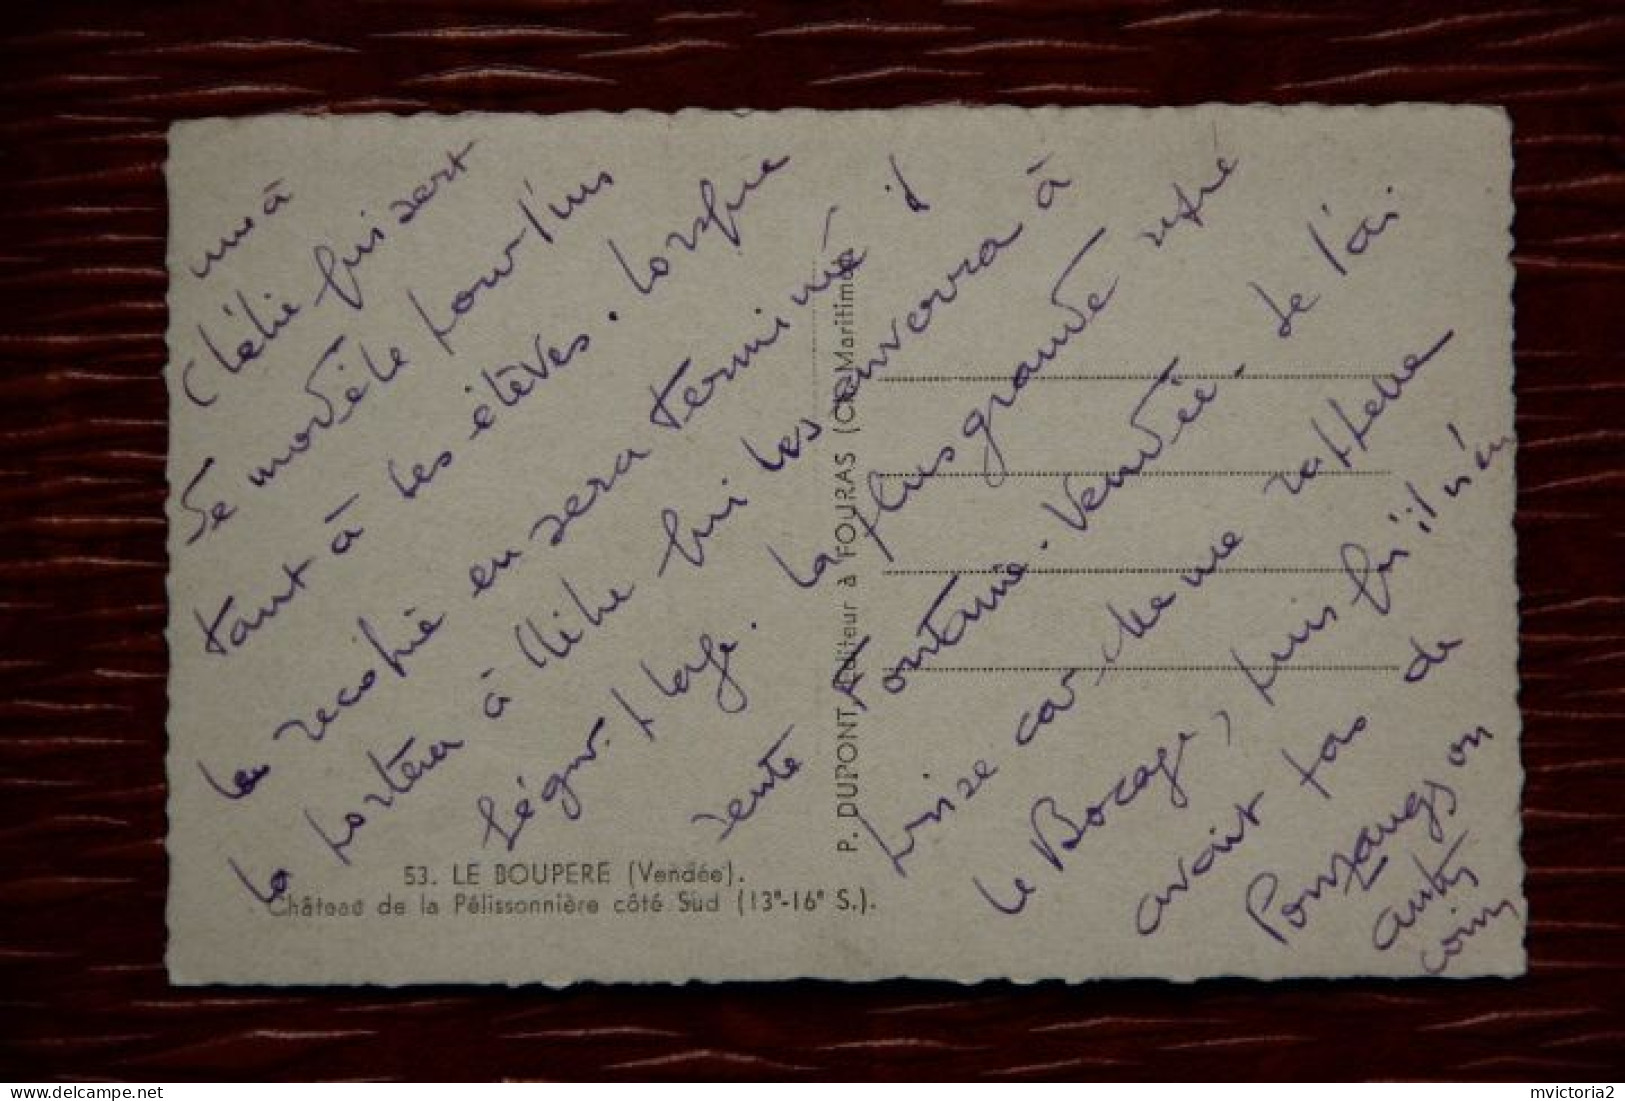 une à
Clélie qui sert
de modèle pour l'ins
tant à ses élèves. Lorsque
la recopie en sera terminée il
la portera à Clélie qui les enverra à
Ségur. Plage. La plus grande
sente Fontaine. Vendée. Je l'ai
prise car elle me rappelle
le Bocage, puis qu'il n'y
avait pas de
Pouzauges ou
autres
coins
53. LE BOUPERE (Vendée).
Château de la Pélissonnière côté Sud (13e-16e S.).
P. DUPONT, Editeur à FOURAS (Cte Maritime)
mvictoria2